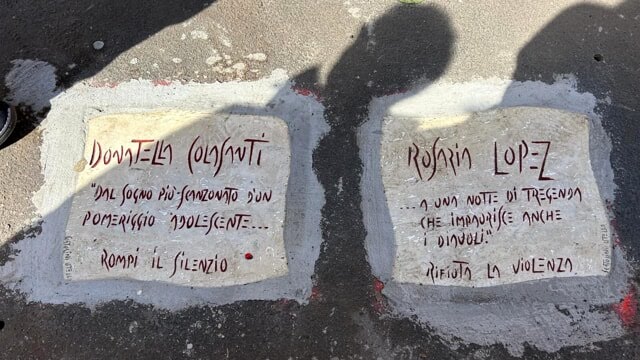 DONATELLA COLASANTI
"DAL SOGNO PIÙ SCANZONATO D'UN
POMERIGGIO ADOLESCENTE...
ROMPI IL SILENZIO
ROSARIA LOPEZ
...A UNA NOTTE DI TREGENDA
CHE IMPAURISCE ANCHE
I DIAVOLI."
RIFIUTA LA VIOLENZA